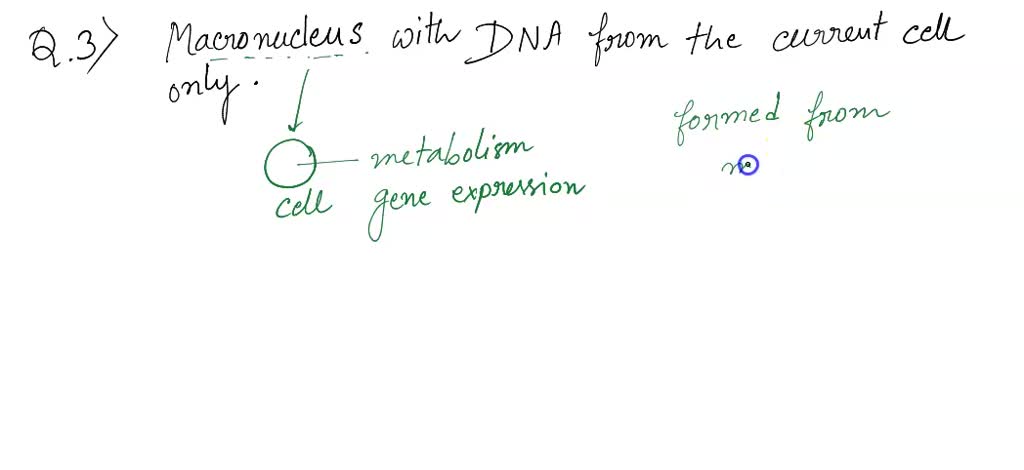 Q.3) Macronucleus with DNA from the current cell
only.
formed from
metabolism
cell gene expression